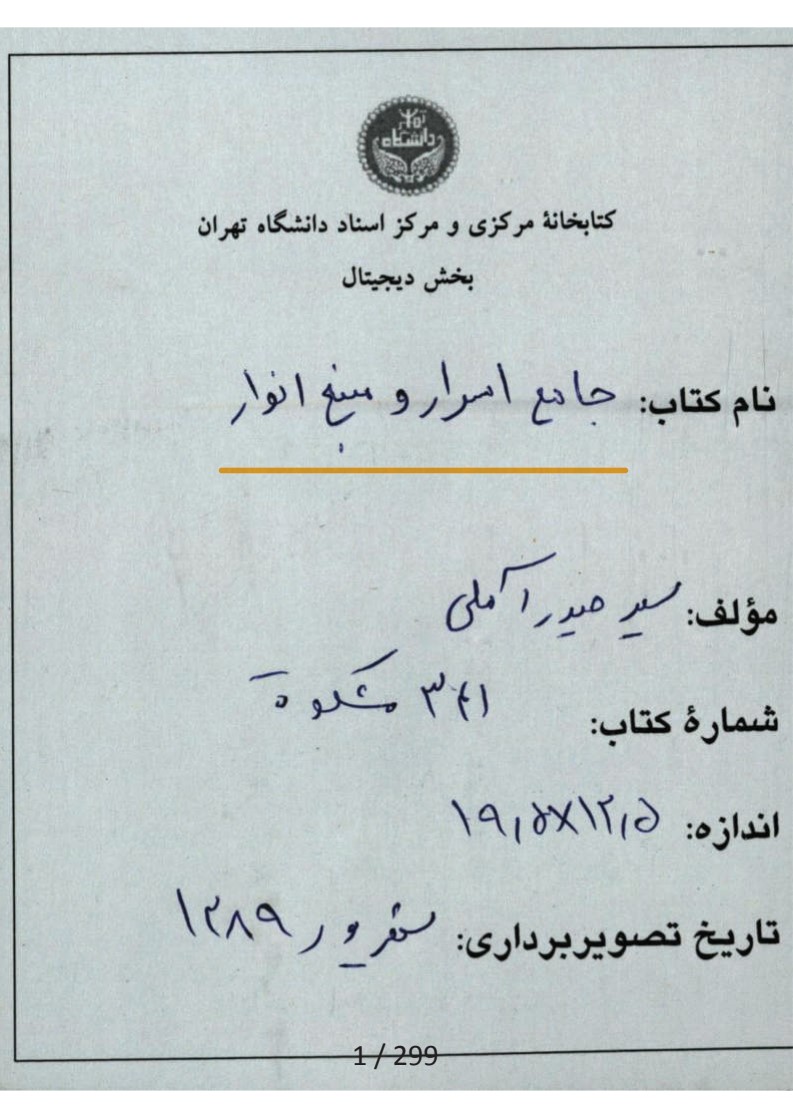 دانشگاه تهران
کتابخانهٔ مرکزی و مرکز اسناد دانشگاه تهران
بخش دیجیتال
نام کتاب: جامع اسرار و منبع انوار
مؤلف: سید حیدر آملی
شمارهٔ کتاب: ۳۴۱ مشکوة
اندازه: ۱۹٫۵X۱۲٫۵
تاریخ تصویربرداری: شهریور ۱۳۸۹
1 / 299